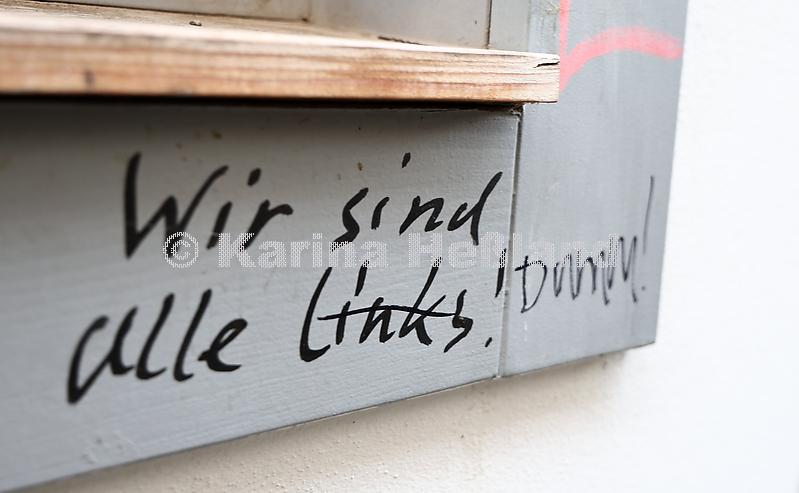 Wir sind
© Karina Heßland
alle links! Dumm!